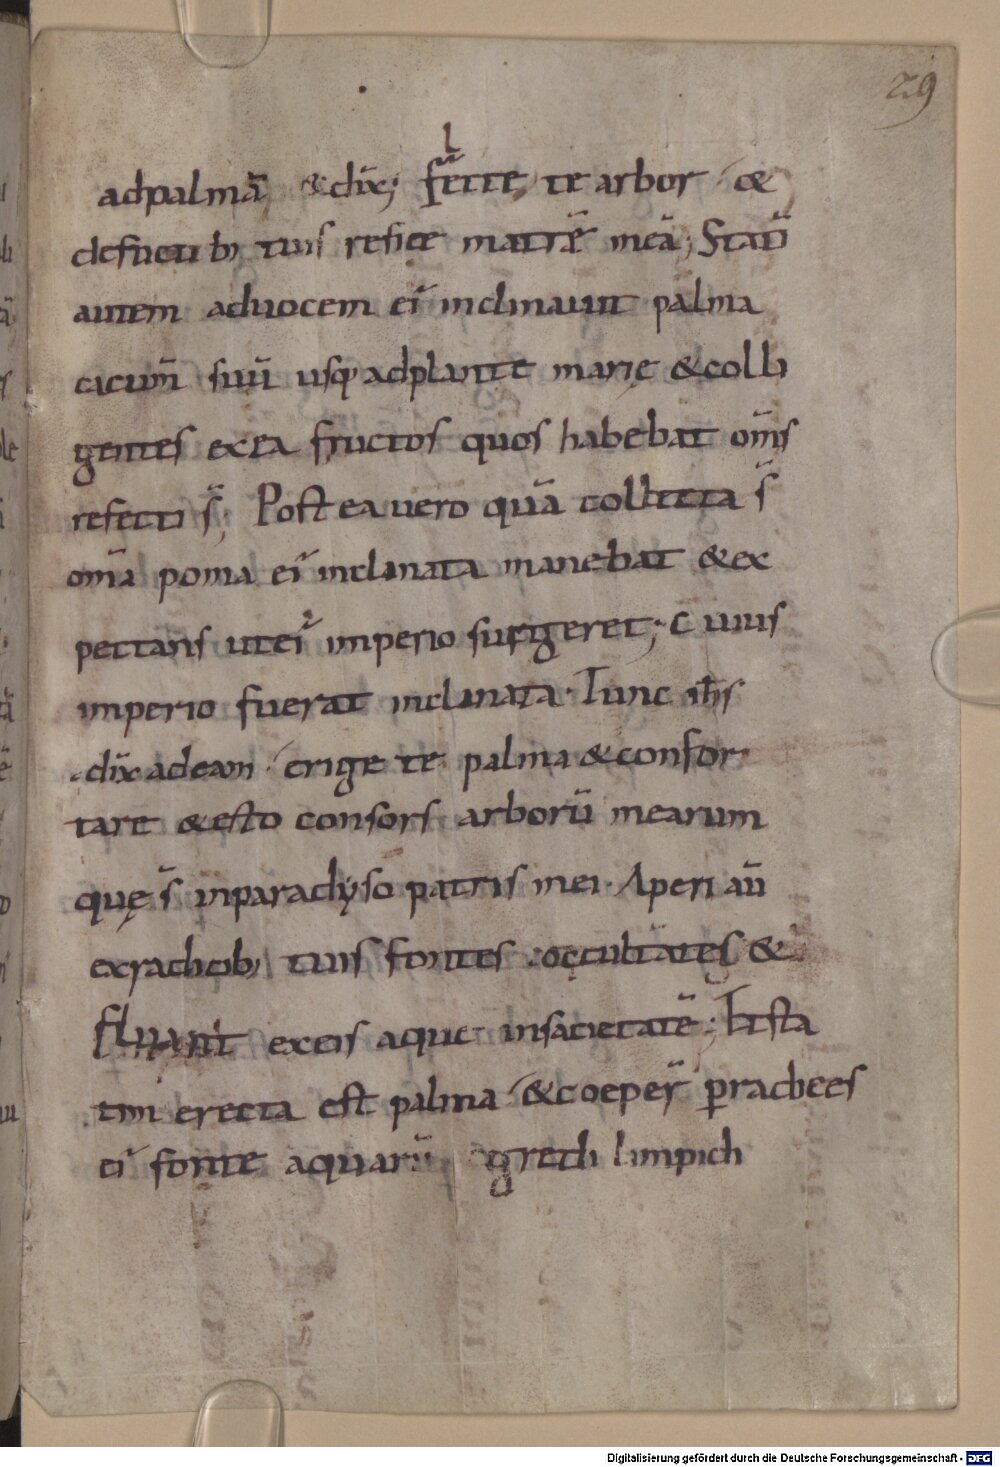 29
adpalmā &dix̄; flēcte te arbor &
defructub; tuis refice matrē meā; Statī
autem aduocem ei' inclinauit palma
cacumī suū usq; adplante marię &colli
gentes exea fructos quos habebat om̄s
refecti s̄; Postea uero quā collecta s̄
om̄a poma ei' inclinata manebat &ex
pectans utei' imperio surgeret; Cuius
imperio fuerat inclinata. Tunc ih̄s
dix̄ adeam erige te palma &confor
tare &esto consors arborū mearum
quę s̄ inparadyso patris mei. Aperi aū
exradicib; tuis fontes occultates &
fluant exeis aque insacietatē; Et sta
tim erecta est palma &coeper̄ p̱eradices
ei' fonte aquarū egredi limpidi
Digitalisierung gefördert durch die Deutsche Forschungsgemeinschaft - DFG